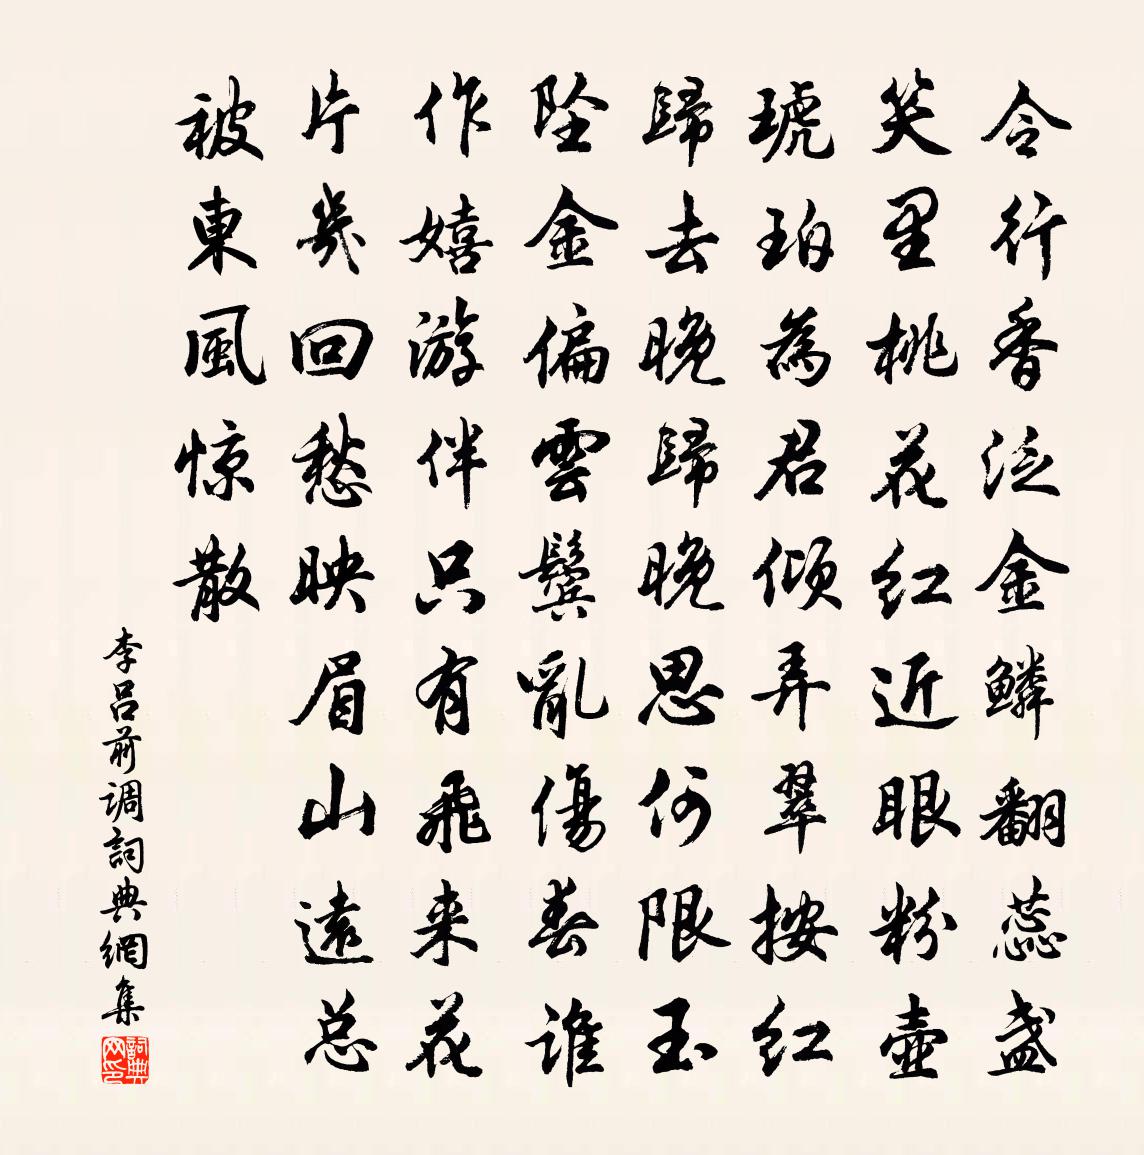 令行香泛金鳞翻蕊盏
笑里桃花红近眼粉壶
琥珀為君倾弄翠按红
歸去晚歸晚思何限玉
坠金偏雲鬓亂傷春誰
作嬉游伴只有飛来花
片幾回愁映眉山遠总
被東風惊散
李吕前调詞典網集
詞典网印